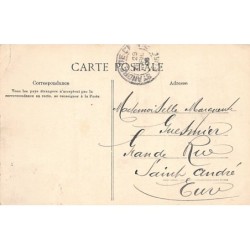 CARTE POSTALE
Correspondance
Tous les pays étrangers n'acceptent pas la
correspondance au recto, se renseigner à la Poste
Adresse
Mademoiselle Marguerite
Guesnier
Grande Rue
Saint André
Eure